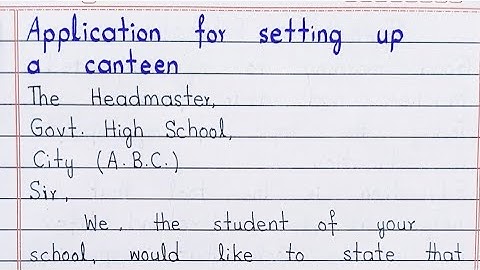 Application for setting up
a canteen
The Headmaster,
Govt. High School,
City (A.B.C.)
Sir,
We, the student of your
school, would like to state that